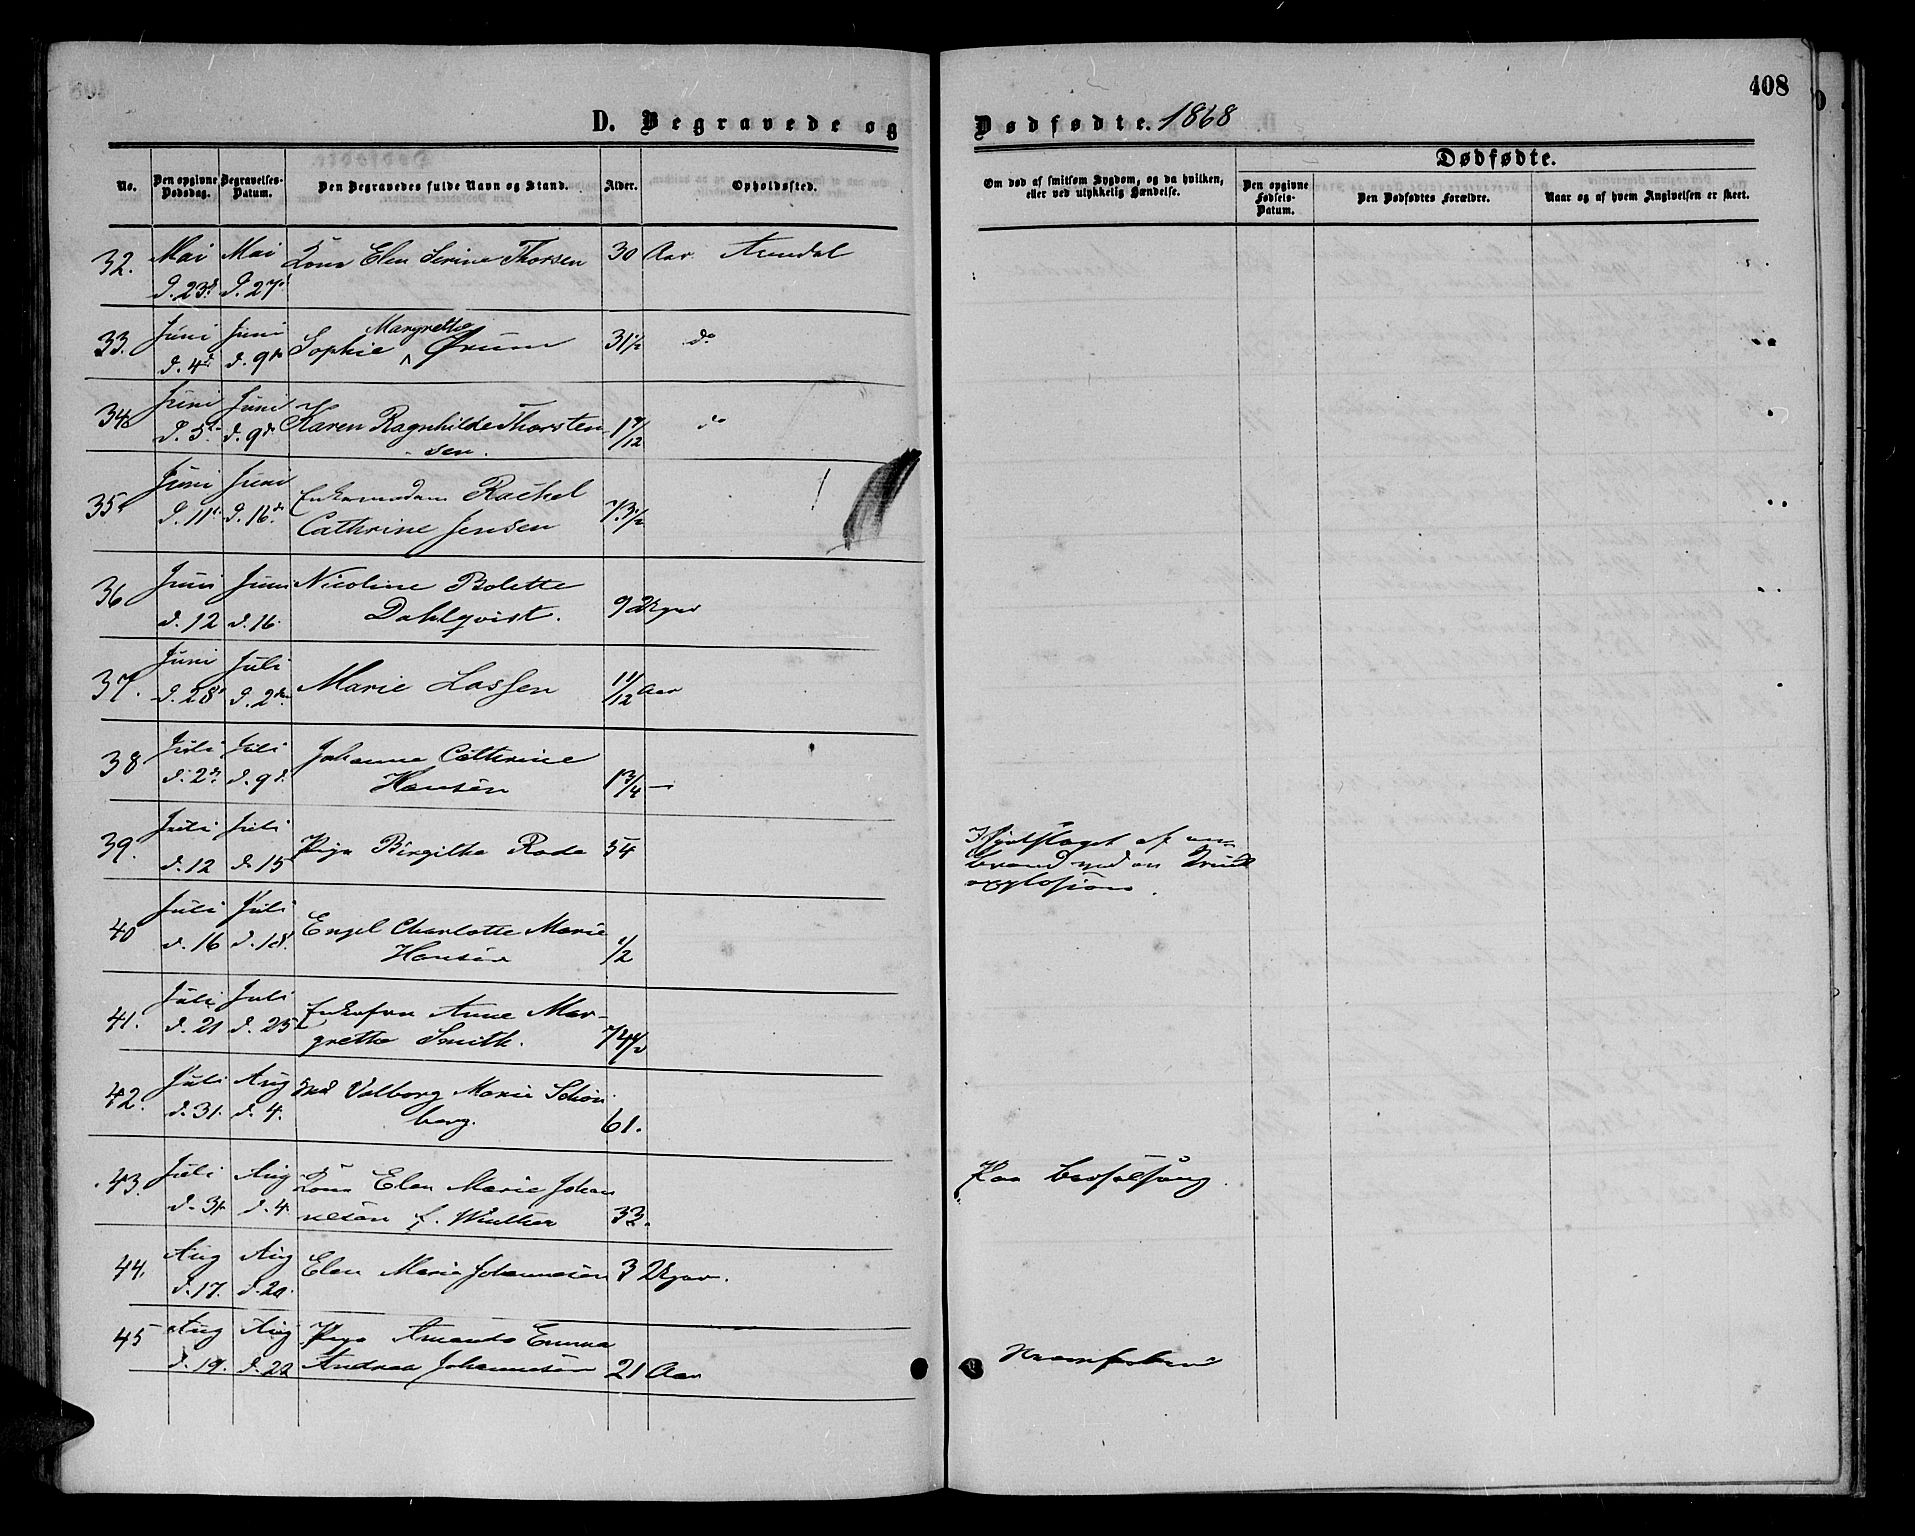 408
D. Begravede og
Dødfødte. 1868
No.
Den opgivne Dødsdag.
Begravelses-Datum.
Den Begravedes fulde Navn og Stand.
Alder.
Opholdssted.
Om død af smitsom Sygdom, og da hvilken, eller ved ulykkelig Hændelse.
Dødfødte.
Den opgivne Fødsels-Datum.
Den Dødfødtes Forældre.
Naar og af hvem Angivelsen er skeet.
32. Mai Mai Kone Elen Serine Thorsen 30 Aar Arendal
d. 23d d. 27d
33. Juni Juni Sophie Margrethe Ørum 31½ do
d. 4d d. 9d
34. Juni Juni Karen Ragnhilde Thorsten- do
d. 5d d. 9d sen.
35. Juni Juni Enkemadam Rachel
d. 11d d. 16d Cathrine Jensen 73½
36 Juni Juni Nicoline Bolette
d. 12 d. 16. Dahlqvist. 9 Uger
37. Juni Juli Marie Lassen 11/12 Aar
d. 28 d. 2den
38 Juli Juli Johanne Cathrine
d. 2d d. 9d Hansen 1¾ —
39. Juli Juli Pige Birgithe Rode 54
d. 12 d. 15
Ihjelslaget af en
brand ved en Krud
explosion.
40 Juli Juli Engel Charlotte Marie
d. 16 d. 18d Hansen ½
41. Juli Juli Enkefru Anne Mar-
d. 21 d. 25 grethe Smith.
42. Juli Aug Md Valborg Marie Schøn
d. 31. d. 4. berg. 61.
43. Juli Aug Kone Elen Marie Johan
d. 31. d. 4. nesen f. 33.
Paa Barselseng.
44. Aug Aug Elen Marie Johannesen 3 Uger.
d. 17. d. 20.
45 Aug Aug Pige Amanda Emma
d. 19. d. 22 Andrea Johannesen 21 Aar